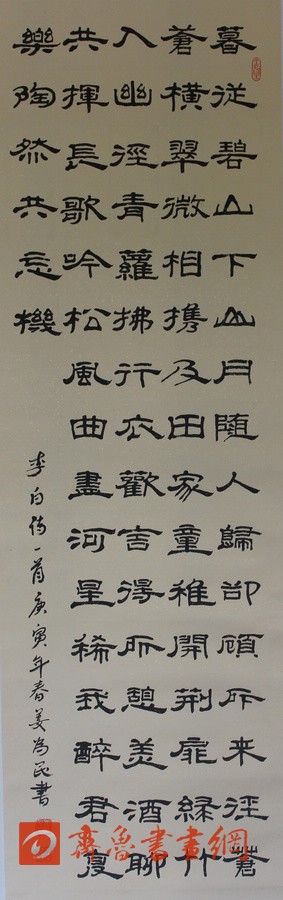 暮從碧山下山月隨人歸卻顧所来徑蒼
蒼橫翠微相攜及田家童稚開荆扉緑竹
入幽徑青蘿拂行衣歡言得所憩美酒聊
共揮長歌吟松風曲盡河星稀我醉君復
樂陶然共忘機
李白詩一首庚寅年春姜為民書
齊魯書畫網